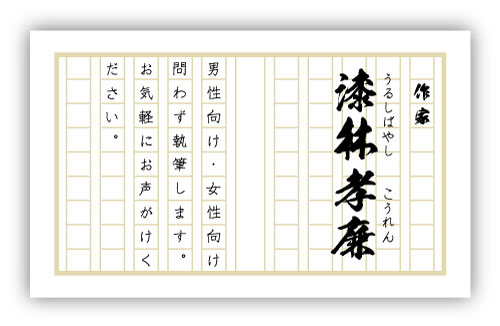 作家
うるしばやし　こうれん
漆林孝廉
男性向け・女性向け
問わず執筆します。
お気軽にお声がけく
ださい。